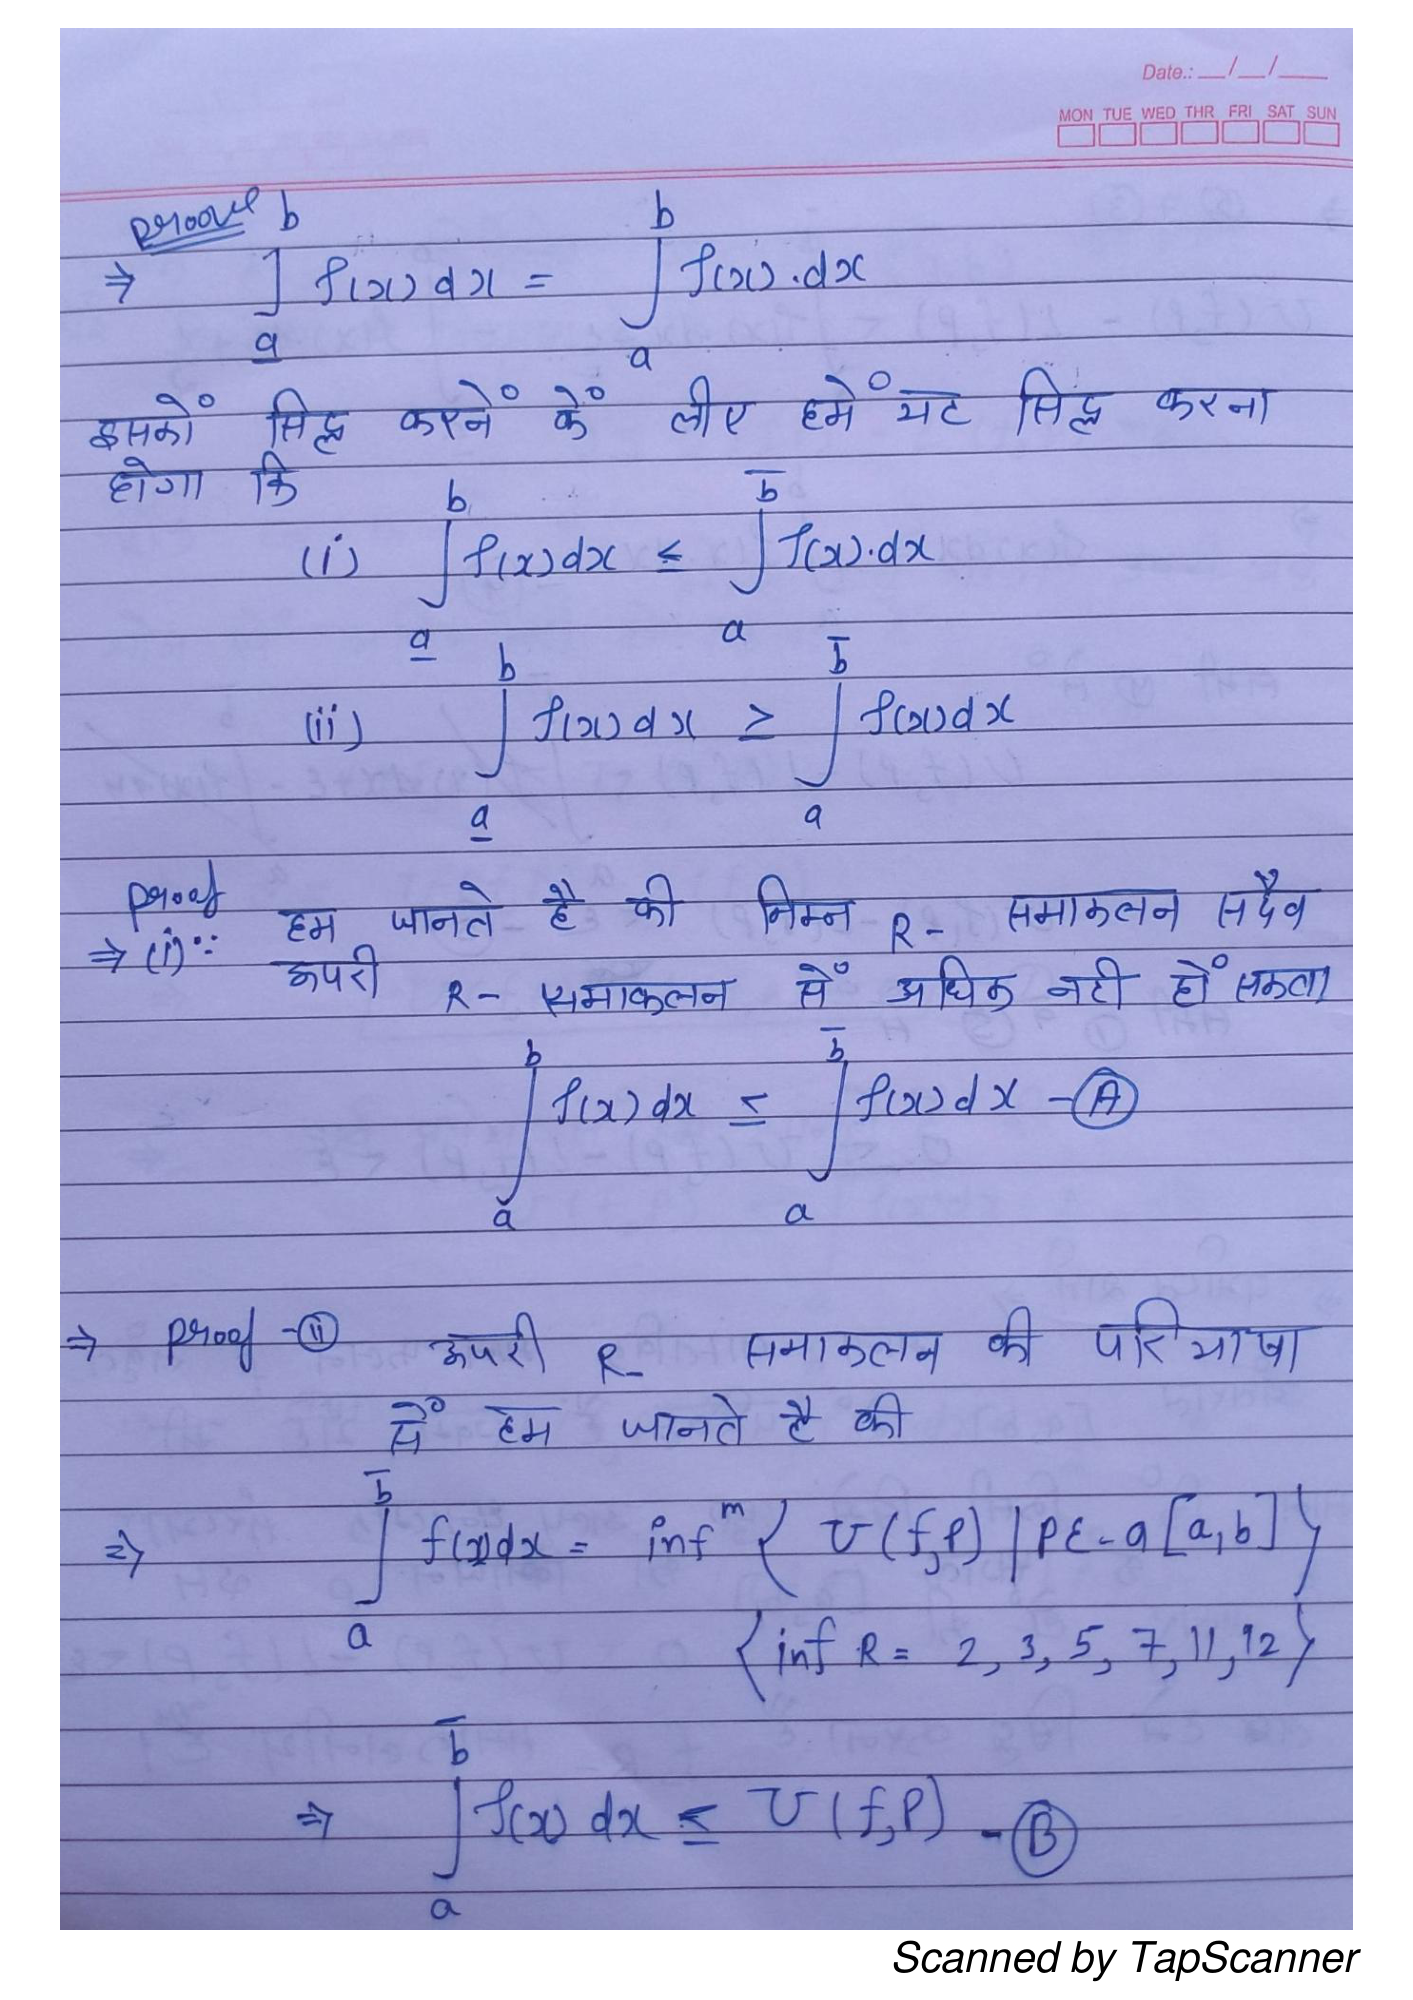 Date.: __/__/___
MON TUE WED THR FRI SAT SUN
Proove
⇒ ∫_a̲^b f(x) dx = ∫_a^b f(x).dx
इसकों सिद्ध करनें कें लीए हमें यह सिद्ध करना
होगा कि
(i) ∫_a̲^b f(x) dx ≤ ∫_a^b̅ f(x).dx
(ii) ∫_a̲^b f(x) dx ≥ ∫_a^b̅ f(x) dx
Proof
⇒ (i) ∵ हम जानते है की निम्न R- समाकलन सदैव
ऊपरी R- समाकलन सें अधिक नही हों सकता
∫_a^b f(x) dx ≤ ∫_a^b̅ f(x) dx - Ⓐ
⇒ Proof - ⓘⓘ ऊपरी R- समाकलन की परिभाषा
सें हम जानते है की
⇒ ∫_a^b̅ f(x) dx = inf^m { U(f,P) | PE-a[a,b] }
{ inf R = 2, 3, 5, 7, 11, 12 }
⇒ ∫_a^b̅ f(x) dx ≤ U(f,P) - Ⓑ
Scanned by TapScanner